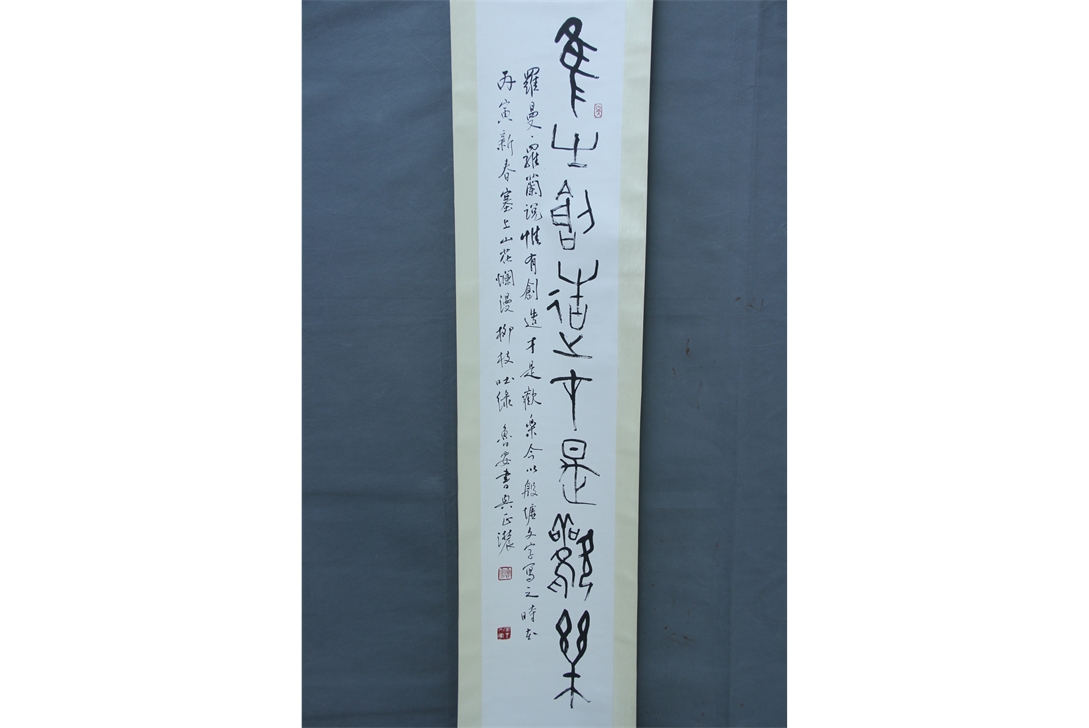 隹㞢創造才是歡樂
羅曼·羅蘭说惟有創造才是歡樂今以殷墟文字寫之時在
丙寅新春塞上山花爛漫柳枝吐绿 魯安書興正濃